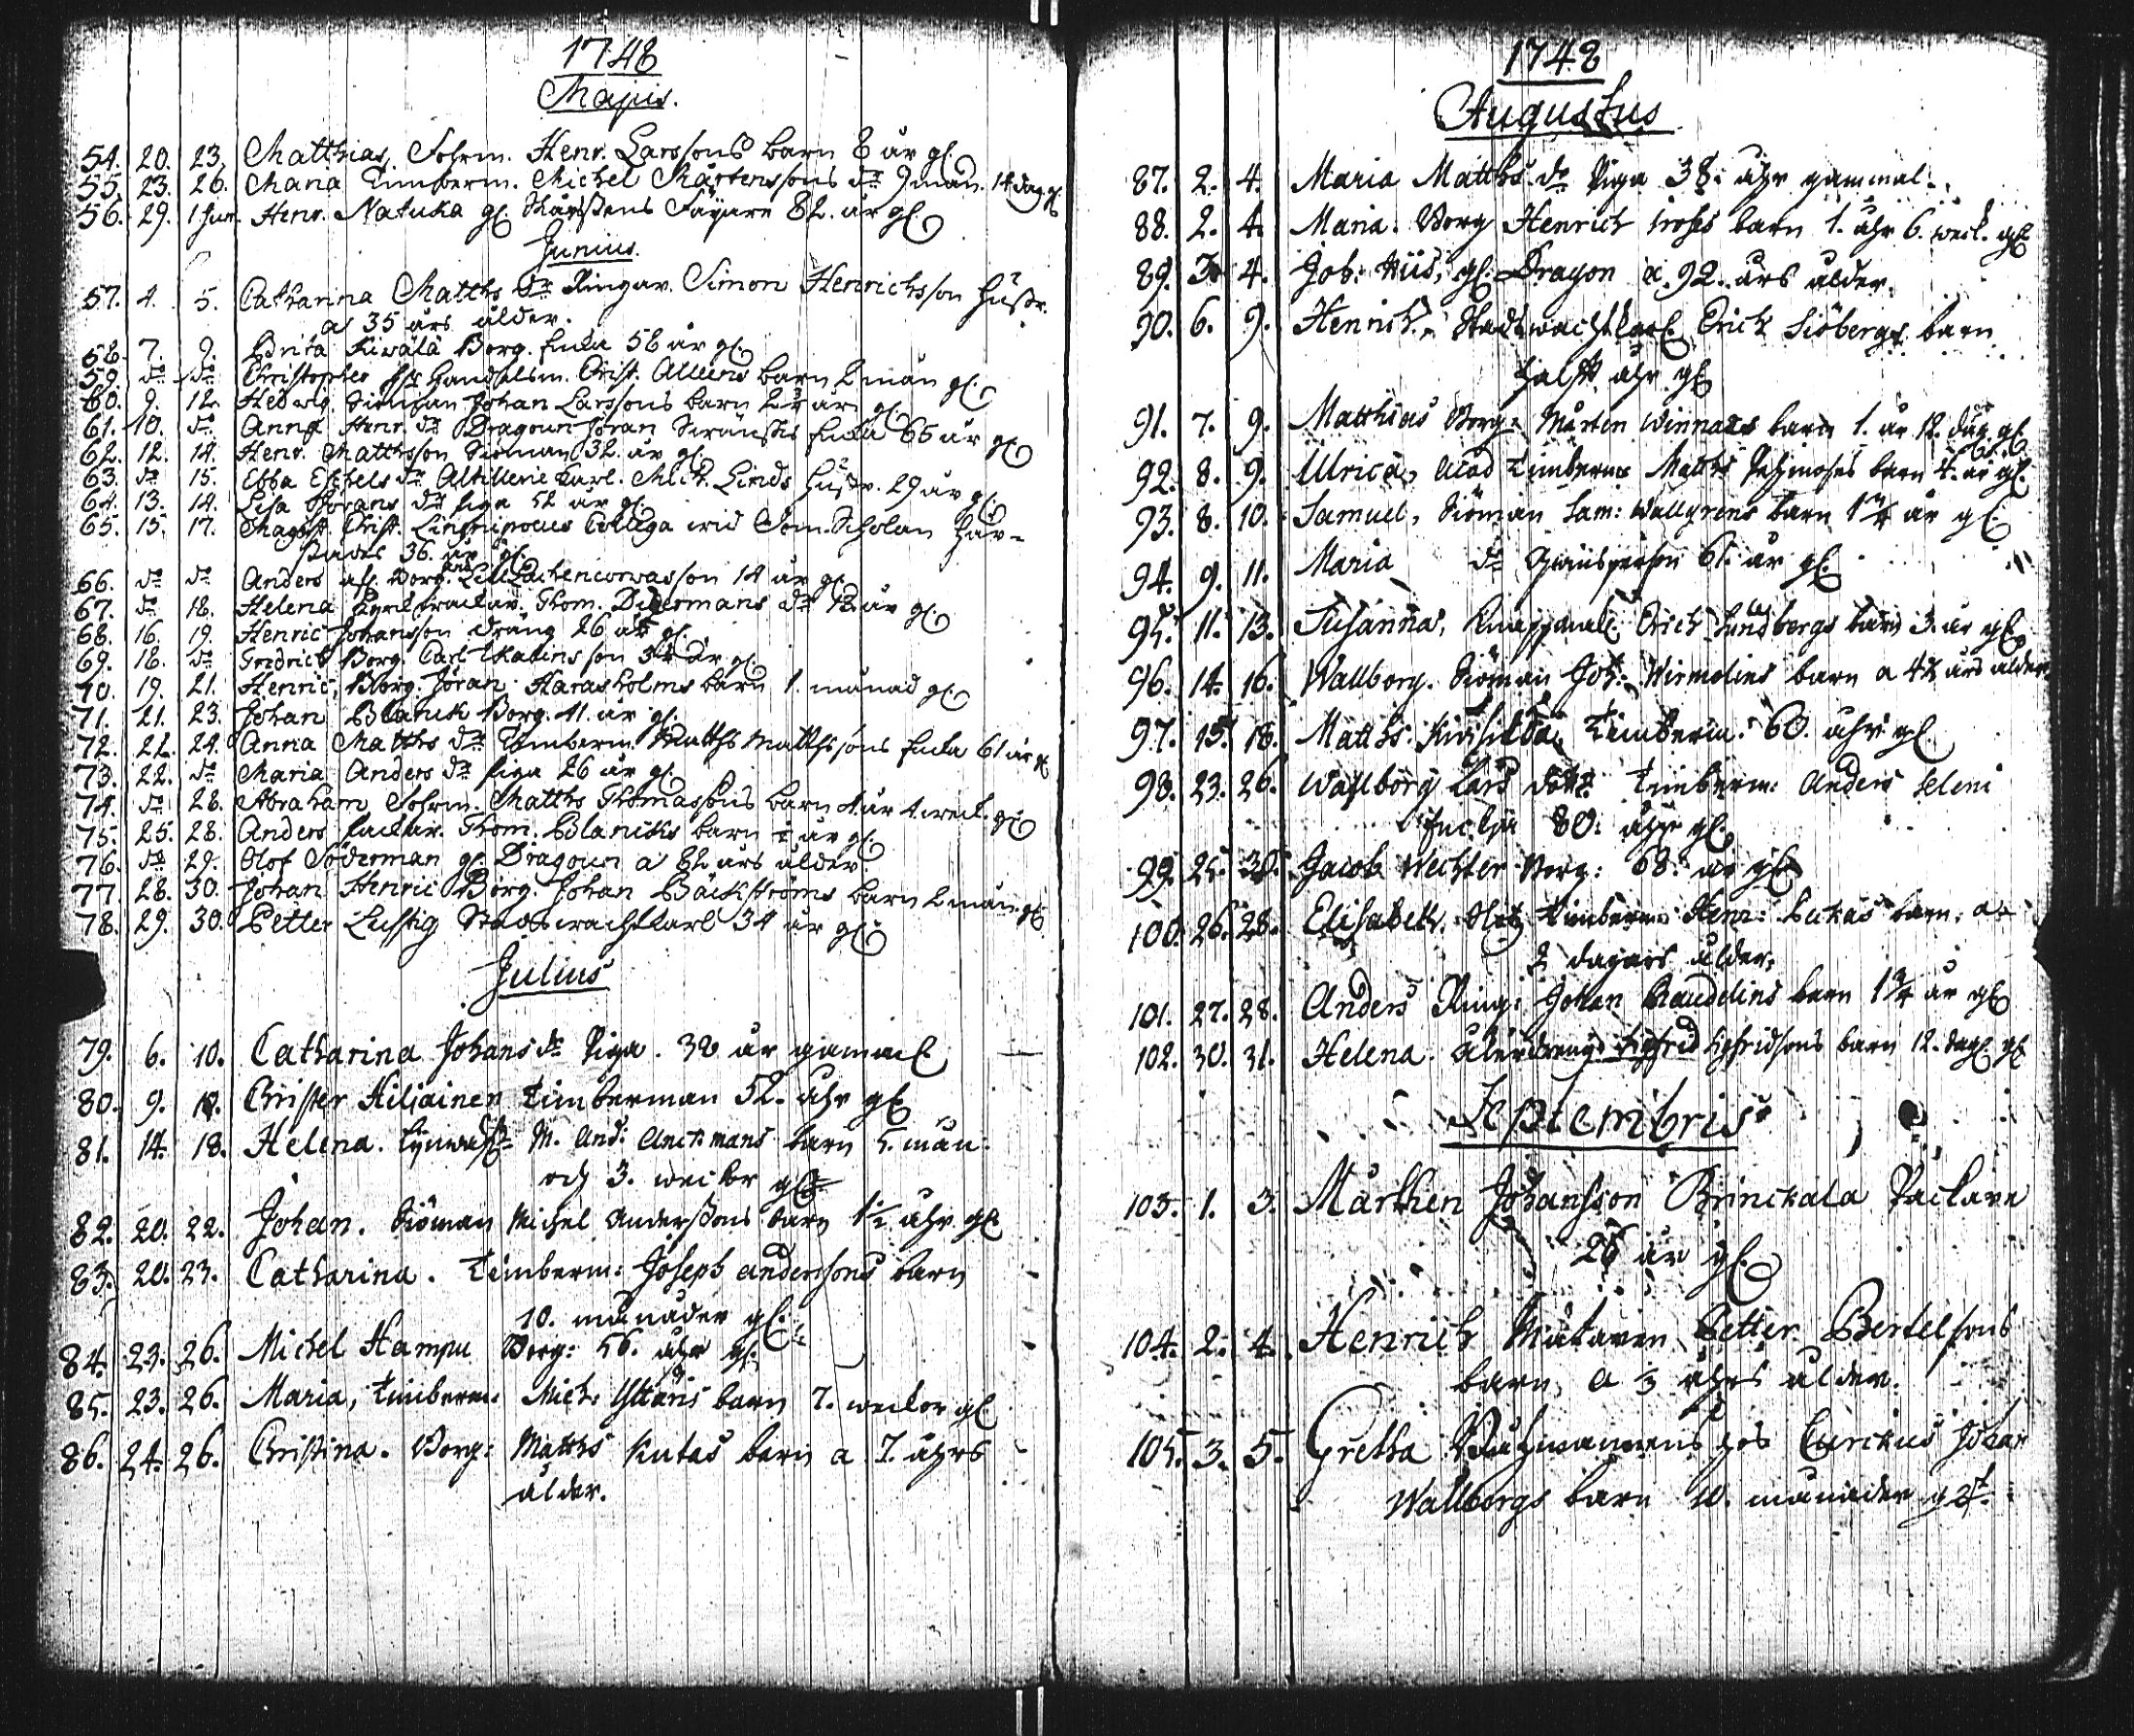 1748
Majus.
54. 20. 23. Matthias, Fohrm. Henr. Larssons barn 8 år gl.
55. 23. 26. Maria Timberm. Michel Mårtenssons dr 9 mån. 14 dag. gl.
56. 29. 1 Jun. Henr. Natuka gl. 82. år gl.
Junius.
57. 4. 5. Catharina Matths dr Ringar. Simon Henrichsson hustr.
a 35 års ålder.
58. 7. 9. Brita Kiwälä Borg. Enka 58 år gl.
59. do do Christopher Handelsm. Christ. barn 2 mån gl.
60. 9. 12. Hedwig. Siöman Johan Larssons barn 2½ år gl.
61. 10. do Anna Henr. dr Dragoun Jöran Enka 65 år gl.
62. 12. 14. Henr. Matthsson Siöman 32. år gl.
63. do 15. Ebba Eskels dr Altillerie Karl. Mich. Linds Hustr. 29 år gl.
64. 13. 14. Lisa Jörans dr Piga 52 år gl.
65. 15. 17. Magist. Christ. Collega wid Scholan här-
stades 36. år gl.
66. do do Anders afl. Borg. son 14 år gl.
67. do 18. Helena Thom. Didermans dr 12 år gl.
68. 16. 19. Henric Johansson dräng 26 år gl.
69. 18. do Fredrich Borg. Carl son år gl.
70. 19. 21. Henric, Borg. Jöran Harasholms barn 1. månad gl.
71. 21. 23. Johan Blanck Borg. 41. år gl.
72. 22. 24. Anna Matths dr Timberm. Matths Matthssons Enka 61 år gl
73. 22. do Maria Anders dr Piga 26 år gl.
74. do 28. Abraham Fohrm. Matths Thomassons barn år 4 weck. gl
75. 25. 28. Anders Packar. Thom. Blancks barn ½ år gl.
76. do 29. Olof Söderman gl. Dragoun a 82 års ålder.
77. 28. 30. Johan Henric Borg. Johan Bäckströms barn 2 mån gl.
78. 29. 30. Petter Lustig Stadswachtkarl 34 år gl.
Julius
79. 6. 10. Catharina Johans dr Piga. 38 år gammal
80. 9. Christer Hiljainen Timberman 52. åhr gl
81. 14. 18. Helena. M. And: Anckmans barn 5. mån.
och 3. weckor gl
82. 20. 22. Johan. Siöman Michel Anderssons barn 1½ åhr gl
83. 20. 23. Catharina. Timberm: Joseph Anderssons barn
10. månader gl.
84. 23. 26. Michel Hampu Borg: 56. åhr gl.
85. 23. 26. Maria, Timberm. Mich: barn 7. weckor gl
86. 24. 26. Christina. Borg: Matths Kutas barn a 7. åhrs
ålder.
1748
Augustus
87. 2. 4. Maria Matths. dr Piga 38. åhr gammal.
88. 2. 4. Maria. Borg Henrich barn 1. åhr 6. weck. gl
89. 3 4. Joh: Hiis, gl: Dragon a. 92. års ålder.
90. 6. 9. Henrich. Stadswachtkarl Erick Siöbergs barn
halft åhr gl
91. 7. 9. Matthias Borg: Mårten barn 1. år 12. dag. gl.
92. 8. 9. Ulrica, Timberm Matths barn 4. år gl.
93. 8. 10. Samuel, Siöman Sam: Wallgrens barn 1¼ år gl.
94. 9. 11. Maria dr 61. år gl.
95. 11. 13. Susanna, Erich Lundbergs barn 3. år gl
96. 14. 16. Wallborg. Siöman Joh: barn a 4½ års ålder.
97. 15. 18. Matths: Timberm: 60. åhr gl.
98. 23. 26. Wallborg Lars dotr Timberm: Anders
Enckja 80. åhr gl.
99. 25. 30. Jacob Wechter Borg: 68. år gl
100. 26. 28. Elisabeth. Timberm: Henr: Lukas barn. a
2 dagars ålder.
101. 27. 28. Anders Ring: Johan Randelins barn 1¾ år gl
102. 30. 31. Helena. Sigfrid Sigfridsons barn 12. dag. gl
Septembris
103. 1. 3. Mårthen Johansson Brinckala Packare
26 år gl.
104. 2. 4. Henrich Mätaren Petter Bertelsons
barn, a 3 åhrs ålder.
105. 3. 5. Gretha hos Johan
Wallborgs barn 10. månader